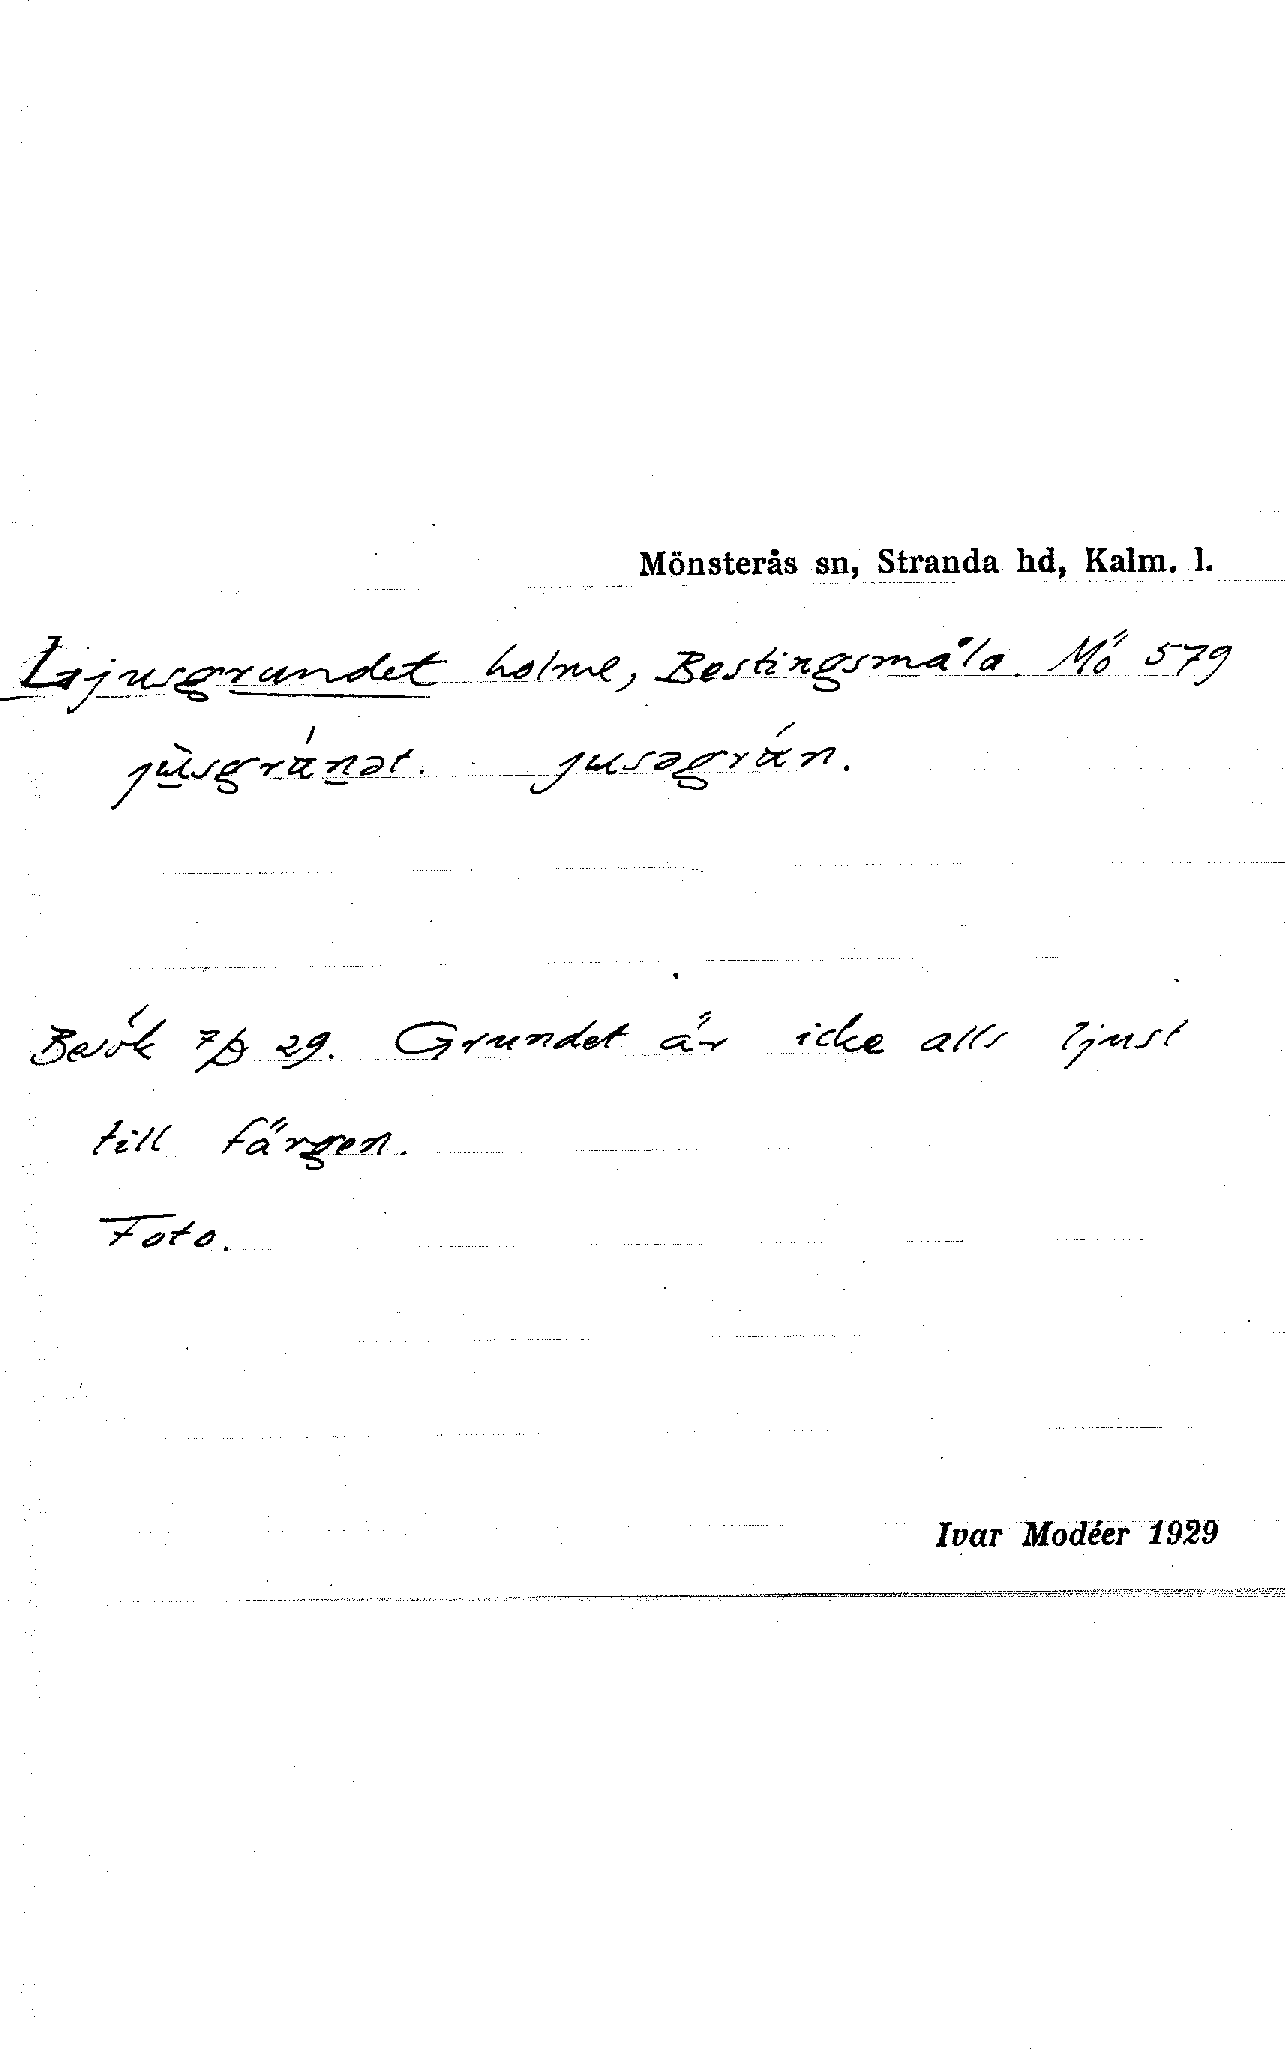 Mönsterås sn, Stranda hd, Kalm. l.
Ljusgrundet holme, Bestingsmåla Mö 579
jùsgránət. jusəgrán.
Besök 7/8 29. Grundet är icke alls ljust
till färgen.
Foto.
Ivar Modéer 1929